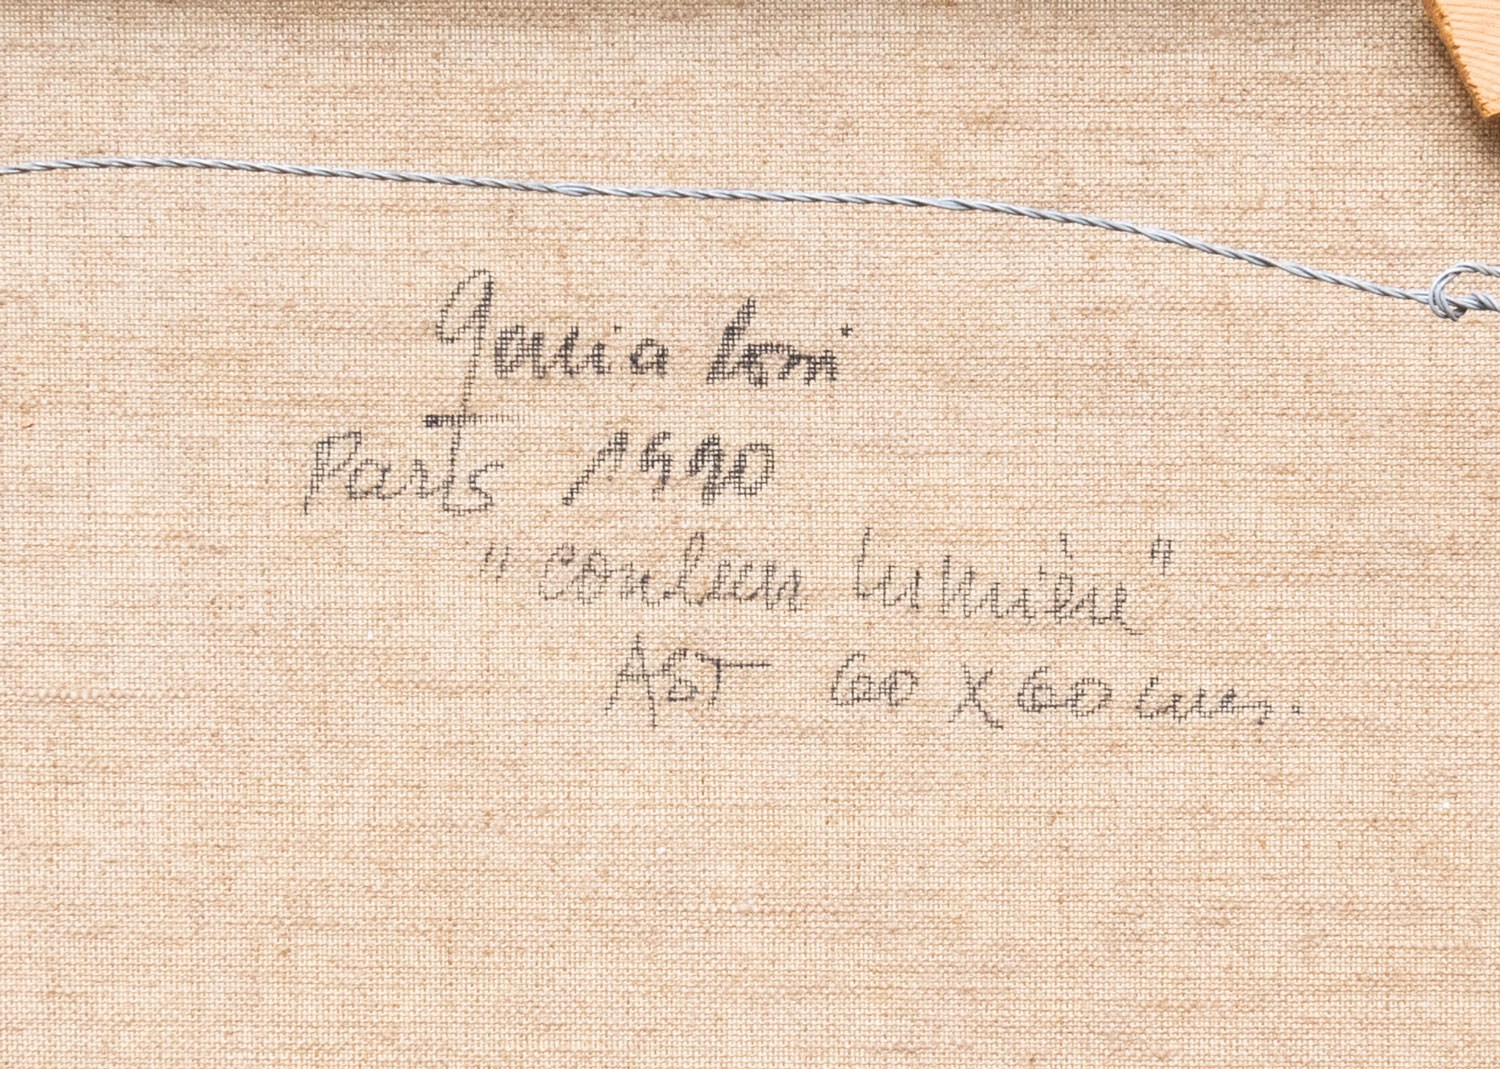 Gania Lori
Paris 1990
"couleur lumière"
AST 60 X 60 cms.